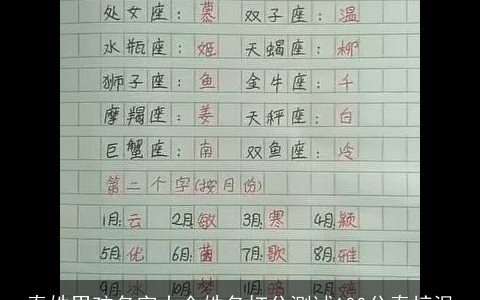 处女座：慕 双子座：温
水瓶座：姬 天蝎座：柳
狮子座：鱼 金牛座：千
摩羯座：姜 天秤座：白
巨蟹座：南 双鱼座：冷
第二个字(按月份)
1月：云 2月：敏 3月：寒 4月：颖
5月：优 6月：茵 7月：歌 8月：雅
9月：冰 10月：梦 11月： 12月：婷